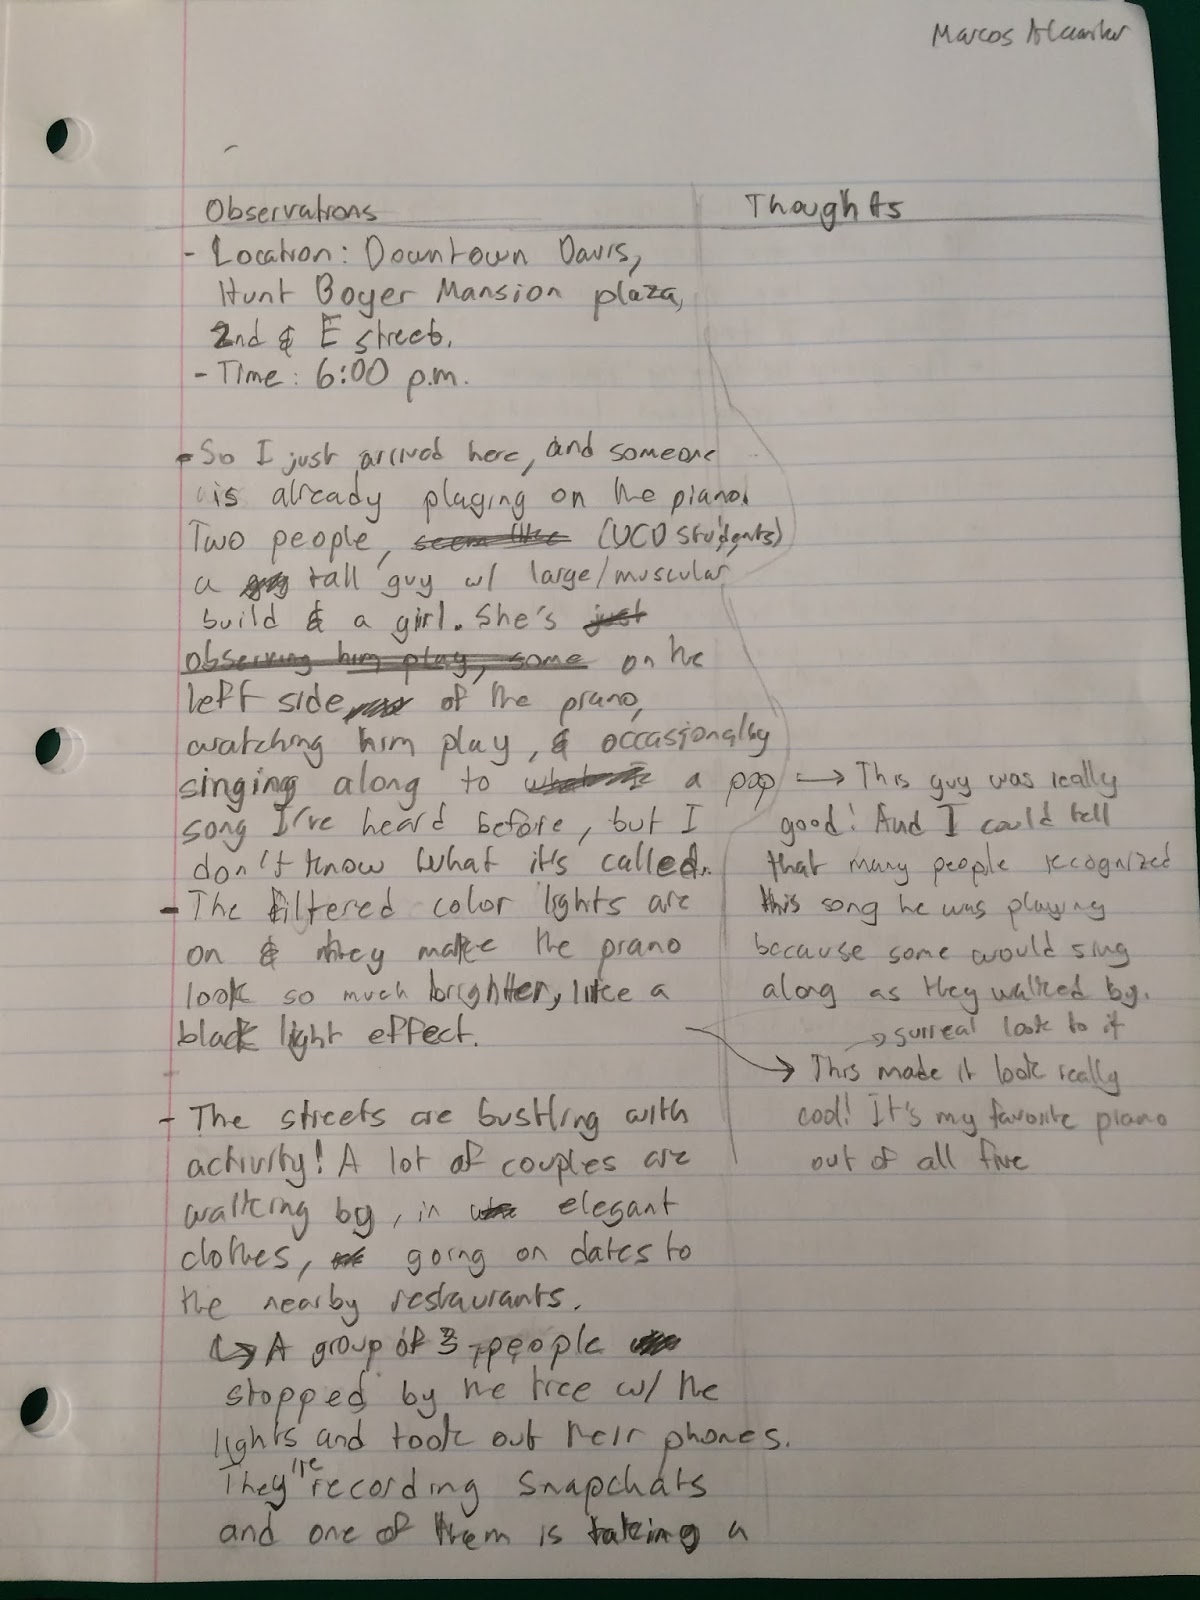 Marcos
Observations
Thoughts
- Location: Downtown Davis,
Hunt Boyer Mansion plaza,
2nd & E street.
- Time: 6:00 p.m.
- So I just arrived here, and someone
is already playing on the piano.
Two people, seem like (UCD students)
a tall guy w/ large/muscular
build & a girl. She's just
observing him play, some on the
left side of the piano,
watching him play, & occasionally
singing along to a pop
song I've heard before, but I
don't know what it's called.
- The filtered color lights are
on & they make the piano
look so much brighter, like a
black light effect.
- The streets are bustling with
activity! A lot of couples are
walking by, in elegant
clothes, going on dates to
the nearby restaurants.
↳ A group of 3 people
stopped by the tree w/ the
lights and took out their phones.
They're recording Snapchats
and one of them is taking a
→ This guy was really
good! And I could tell
that many people recognized
this song he was playing
because some would sing
along as they walked by.
→ surreal look to it
→ This made it look really
cool! It's my favorite piano
out of all five